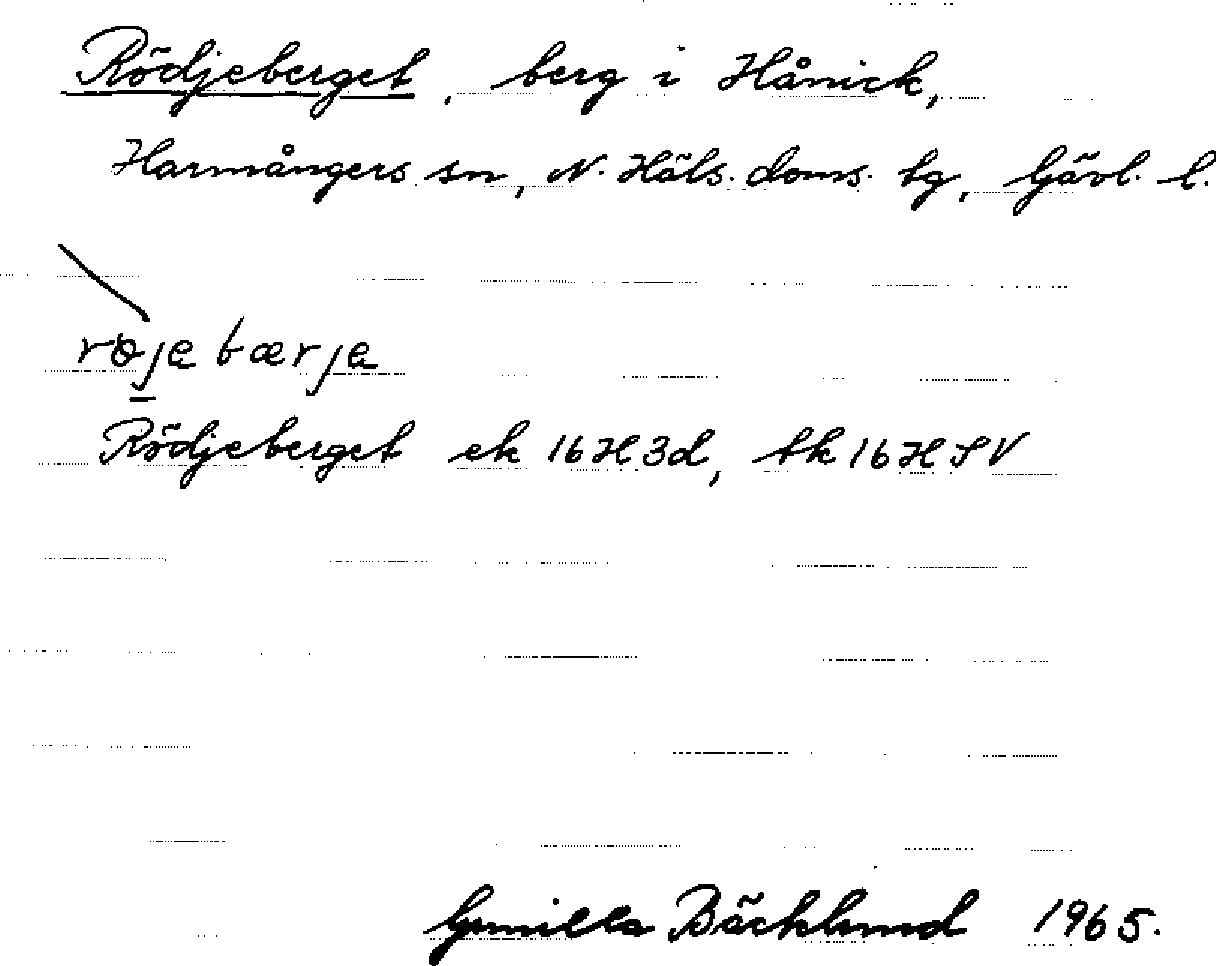 Rödjeberget, berg i Hånick,
Harmångers sn, N. Häls. doms. tg, Gävl. l.
røjebærje
Rödjeberget ek 16H3d, tk 16H SV
Gunilla Bäcklund 1965.